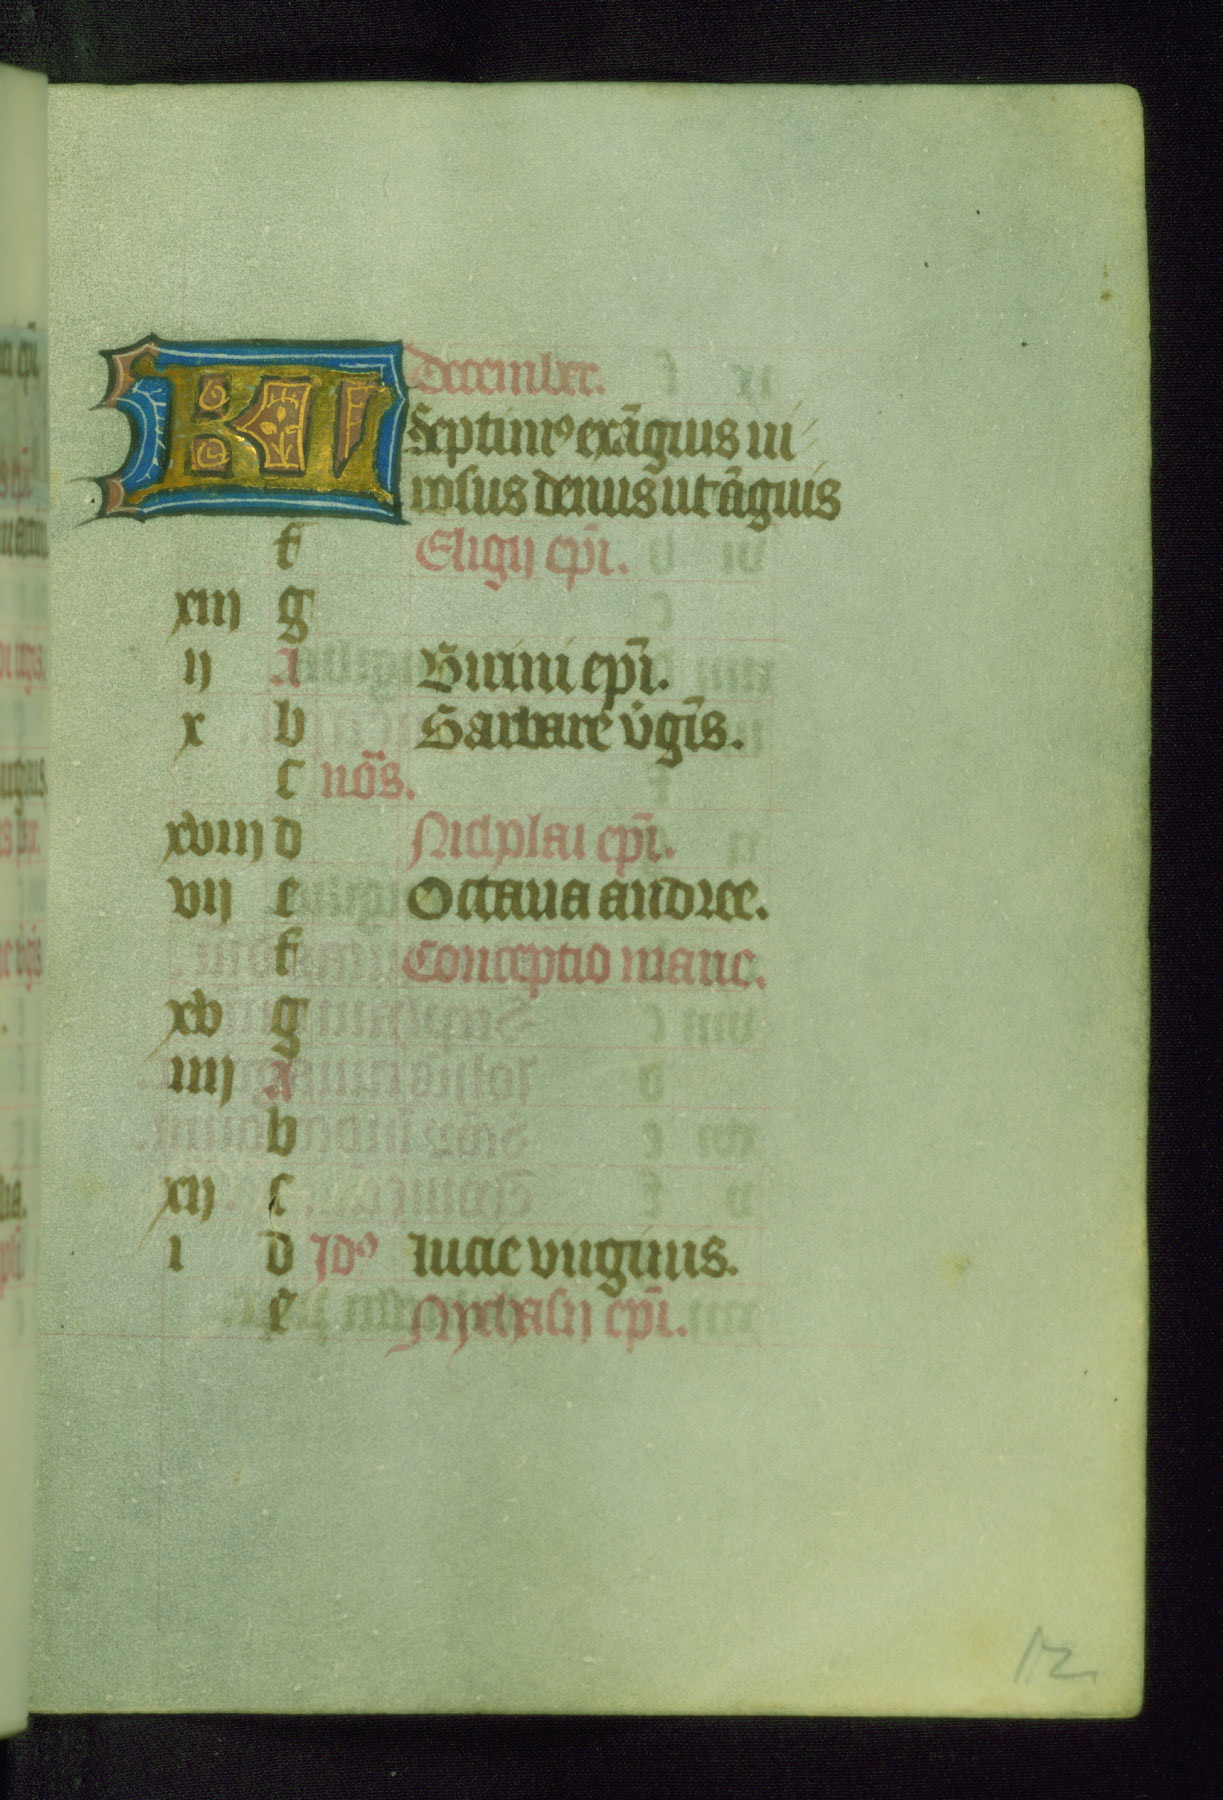 KL December.
Septim9 exāguis ui
rosus denus ut āguis
f Eligij ep̄i.
xiij g
ij A Birini ep̄i.
x b Barbare v̇gīs.
c nōs.
xviij d Nicholai ep̄i.
vij e Octaua andree.
f Conceptio marie.
xv g
iiij A
b
xij c
i d Id9 lucie virginis.
e Nychasij ep̄i.
12